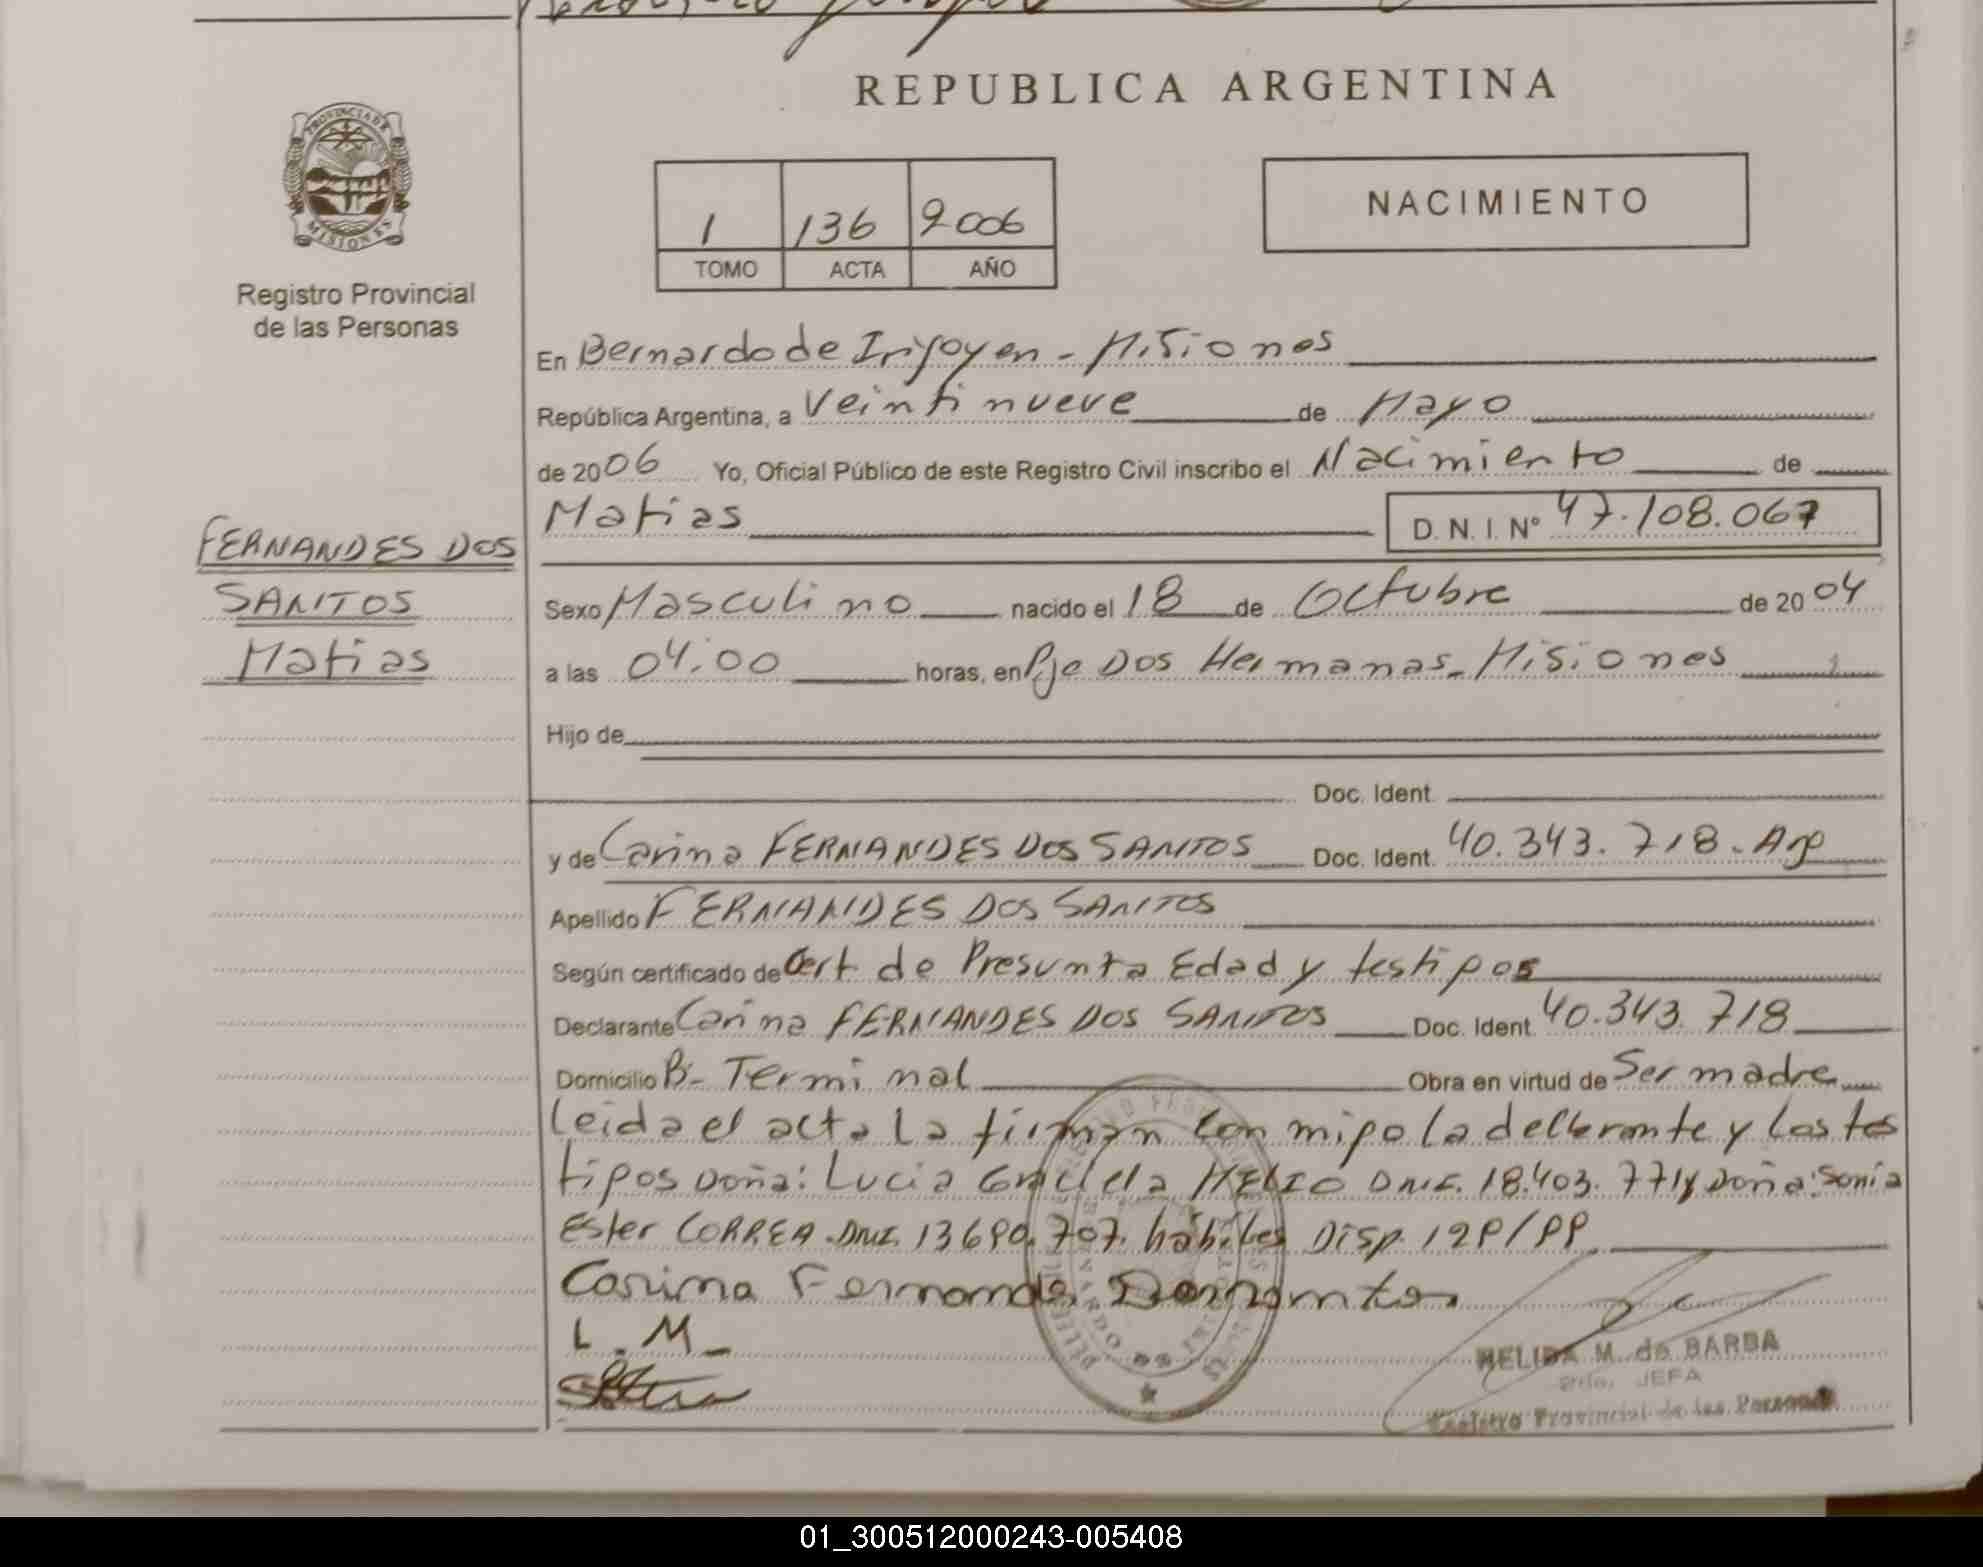 REPUBLICA ARGENTINA
PROVINCIA DE
MISIONES
Registro Provincial
de las Personas
1 136 2006
TOMO ACTA AÑO
NACIMIENTO
En Bernardo de Irigoyen - Misiones
República Argentina, a Veintinueve de Mayo
de 2006 Yo, Oficial Público de este Registro Civil inscribo el Nacimiento de
Matias D. N. I. Nº 47.108.067
FERNANDES DOS
SANTOS
Matias
Sexo Masculino nacido el 18 de Octubre de 2004
a las 04:00 horas, en Pje Dos Hermanas - Misiones
Hijo de
Doc. Ident.
y de Carina FERNANDES DOS SANTOS Doc. Ident. 40.343.718 - Arg
Apellido FERNANDES DOS SANTOS
Según certificado de Cert de Presunta Edad y testigos
Declarante Carina FERNANDES DOS SANTOS Doc. Ident. 40.343.718
Domicilio Bº Terminal Obra en virtud de Ser madre
Leida el acta La firman Con migo La declarante y Los tes
tigos Doña: Lucia Graciela MELLO DNI. 18.403.771 y Doña: Sonia
Ester CORREA - DNI. 13690.707. hábiles Disp.
Carina Fernandes Dossantos
L. M_
HELIDA M. de BARBA
JEFA
Registro Provincial de las Personas
01_300512000243-005408